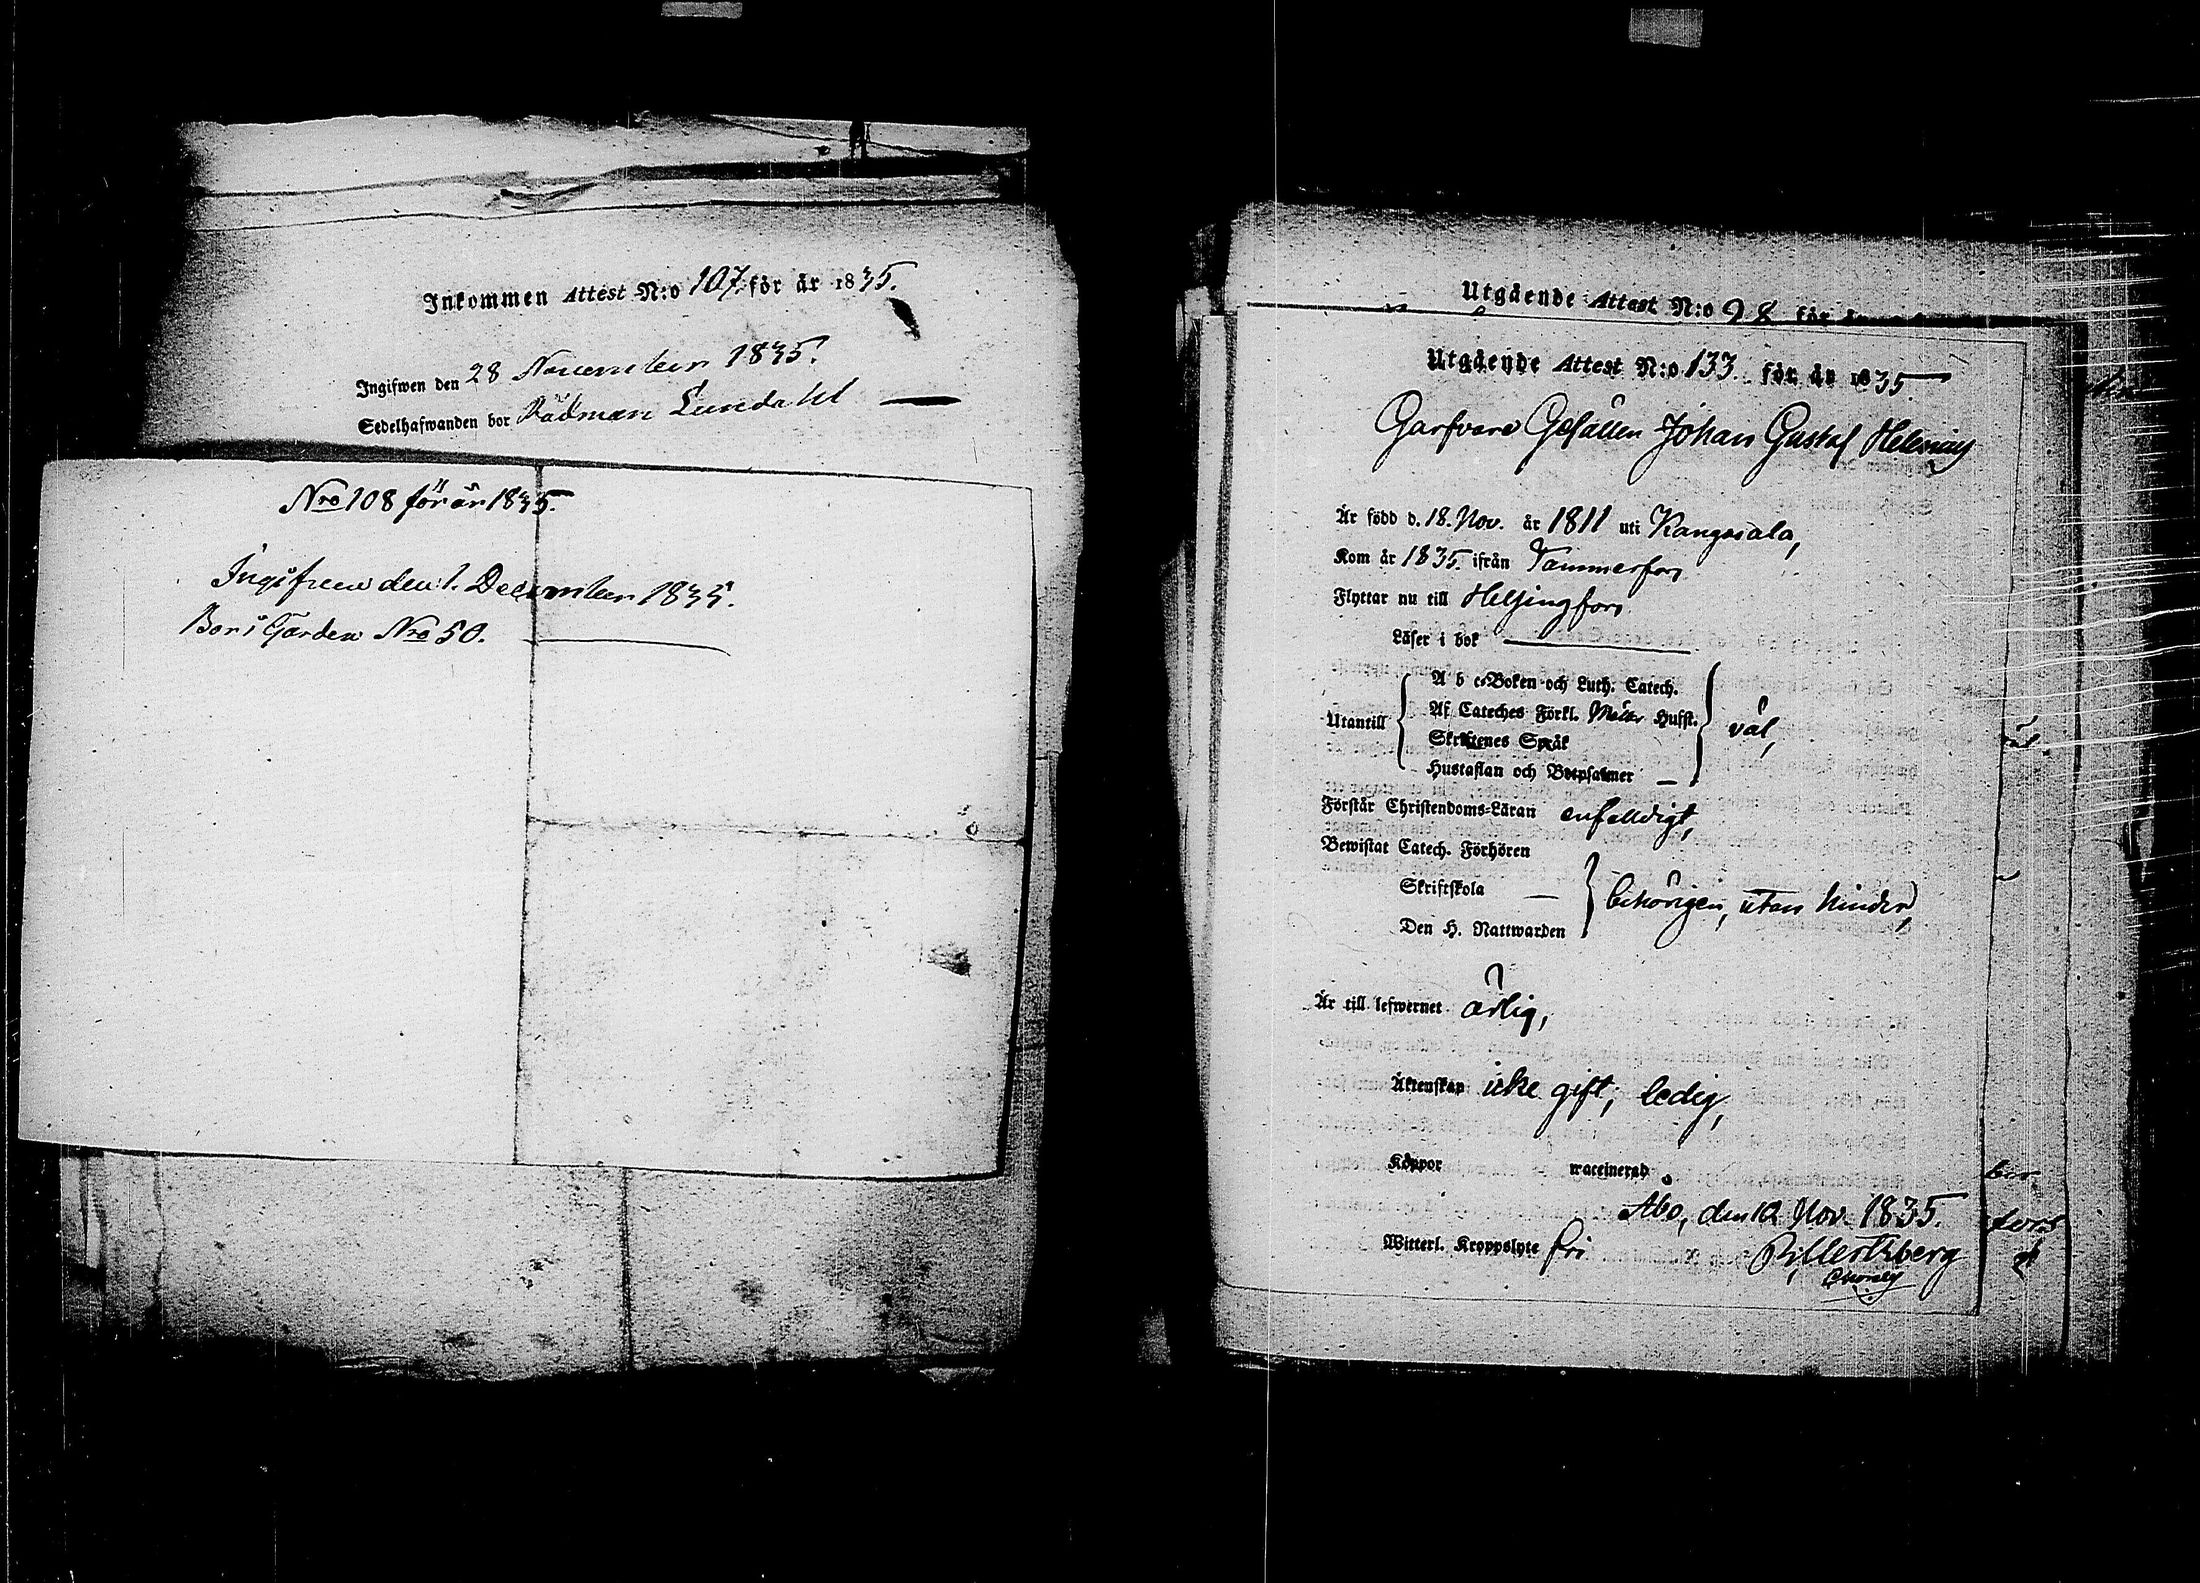 Inkommen Attest N:o 107 för år 1835.
Ingifwen den 28 November 1835.
Sedelhafwanden bor Rådman Lundahl
Nro 108 för år 1835.
Ingifven den 1. December 1835.
Bor i Gården Nro 50.
Utgående Attest N:o 98 för
Utgående Attest N:o 133. för år 1835
Garfvare Gesällen Johan Gustaf Helenius
Är född d. 18. Nov. år 1811 uti Kangasala,
Kom år 1835. ifrån Tammerfors
Flyttar nu till Helsingfors.
Läser i bok
A b c-Boken och Luth. Catech.
Utantill Af Cateches Förkl. Hufst. väl,
Skriftenes Språk
Hustaflan och Botpsalmer
Förstår Christendoms-Läran enfaldigt,
Bewistat Catech. Förhören
Skriftskola behörigen, utan hinder,
Den H. Nattwarden
Är till lefwernet ärlig,
Äktenskap icke gift, ledig,
Koppor waccinerad
Åbo, den 12 Nov. 1835.
Witterl. Kroppslyte fri